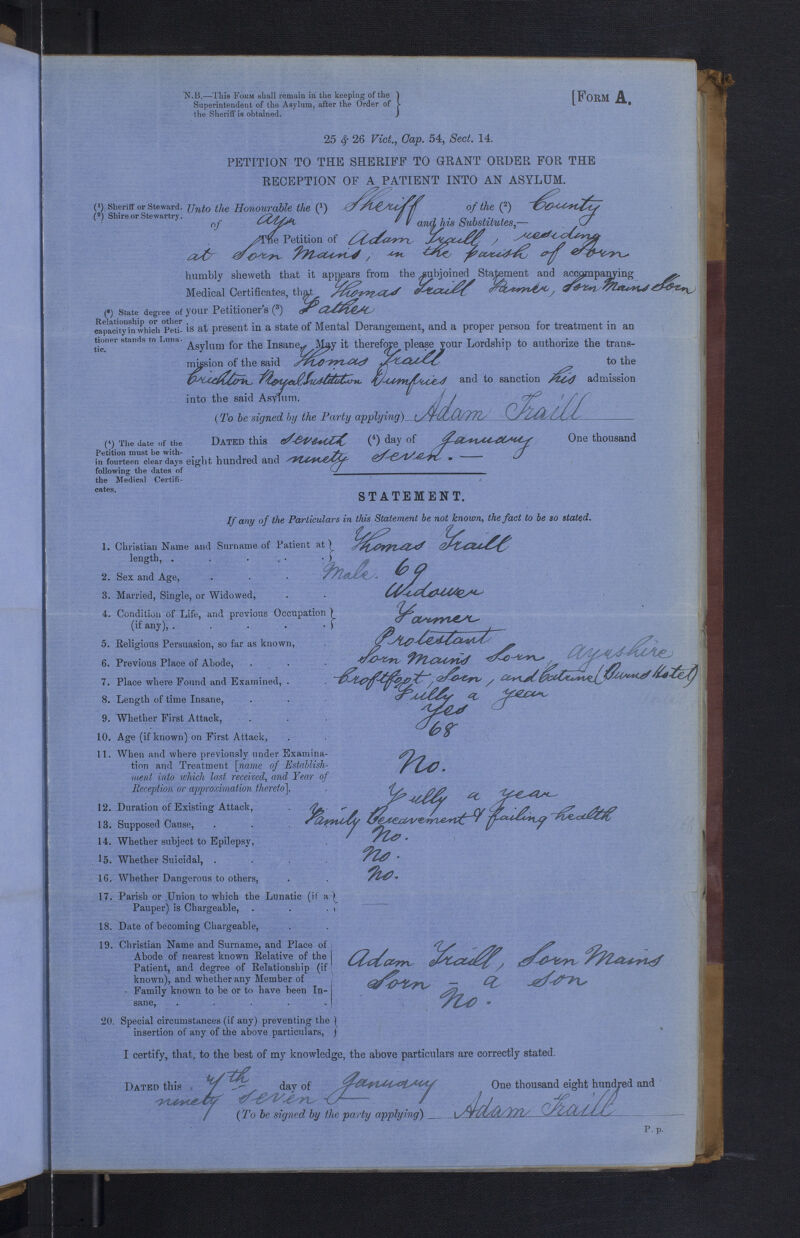 N.B.—This Form shall remain in the keeping of the
Superintendent of the Asylum, after the Order of
the Sheriff is obtained.
[Form A.
25 & 26 Vict., Cap. 54, Sect. 14.
PETITION TO THE SHERIFF TO GRANT ORDER FOR THE
RECEPTION OF A PATIENT INTO AN ASYLUM.
(¹) Sheriff or Steward.
(²) Shire or Stewartry.
Unto the Honourable the (¹) Sheriff of the (²) County
of Ayr and his Substitutes,—
The Petition of Adam Traill, residing
at Sorn Mains, in the parish of Sorn
humbly sheweth that it appears from the subjoined Statement and accompanying
Medical Certificates, that Thomas Traill Farmer, Sorn Mains Sorn
(³) State degree of
Relationship or other
capacity in which Peti-
tioner stands to Luna-
tic.
your Petitioner's (³) Father
is at present in a state of Mental Derangement, and a proper person for treatment in an
Asylum for the Insane. May it therefore please your Lordship to authorize the trans-
mission of the said Thomas Traill to the
Crichton Royal Institution Dumfries and to sanction his admission
into the said Asylum.
(To be signed by the Party applying) Adam Traill
(⁴) The date of the
Petition must be with-
in fourteen clear days
following the dates of
the Medical Certifi-
cates.
Dated this Seventh (⁴) day of January One thousand
eight hundred and ninety seven.—
STATEMENT.
If any of the Particulars in this Statement be not known, the fact to be so stated.
1. Christian Name and Surname of Patient at
length, . Thomas Traill
2. Sex and Age, Male. 69
3. Married, Single, or Widowed, Widower
4. Condition of Life, and previous Occupation
(if any), . Farmer
5. Religious Persuasion, so far as known, Protestant
6. Previous Place of Abode, Sorn Mains Sorn, Ayrshire
7. Place where Found and Examined, . Croftfoot, Sorn, and Catrine (Burns Hotel)
8. Length of time Insane, Fully a year
9. Whether First Attack, Yes
10. Age (if known) on First Attack, 68
11. When and where previously under Examina-
tion and Treatment [name of Establish-
ment into which last received, and Year of
Reception or approximation thereto], No.
12. Duration of Existing Attack, Fully a year
13. Supposed Cause, Family Bereavement & failing health
14. Whether subject to Epilepsy, No.
15. Whether Suicidal, . No.
16. Whether Dangerous to others, No.
17. Parish or Union to which the Lunatic (if a
Pauper) is Chargeable,
18. Date of becoming Chargeable,
19. Christian Name and Surname, and Place of
Abode of nearest known Relative of the
Patient, and degree of Relationship (if
known), and whether any Member of
Family known to be or to have been In-
sane,
Adam Traill, Sorn Mains
Sorn – a son
No.
20. Special circumstances (if any) preventing the
insertion of any of the above particulars,
I certify, that, to the best of my knowledge, the above particulars are correctly stated.
Dated this 7th day of January One thousand eight hundred and
ninety seven
(To be signed by the party applying) Adam Traill
P. p.